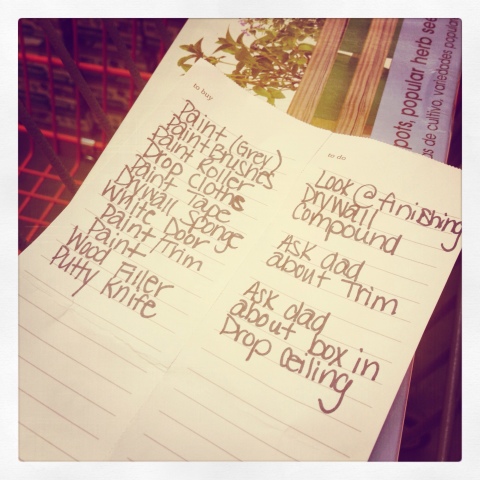 to buy
Paint (Grey)
Paint Brushes
Paint Roller
Drop Cloths
Paint Tape
Drywall Sponge
White Door
Paint Trim
Paint
Wood Filler
Putty Knife
to do
Look @ finishing
Drywall
Compound
Ask dad
about Trim
Ask dad
about box in
Drop ceiling
pots, popular herb see
as de cultivo, variedades popula